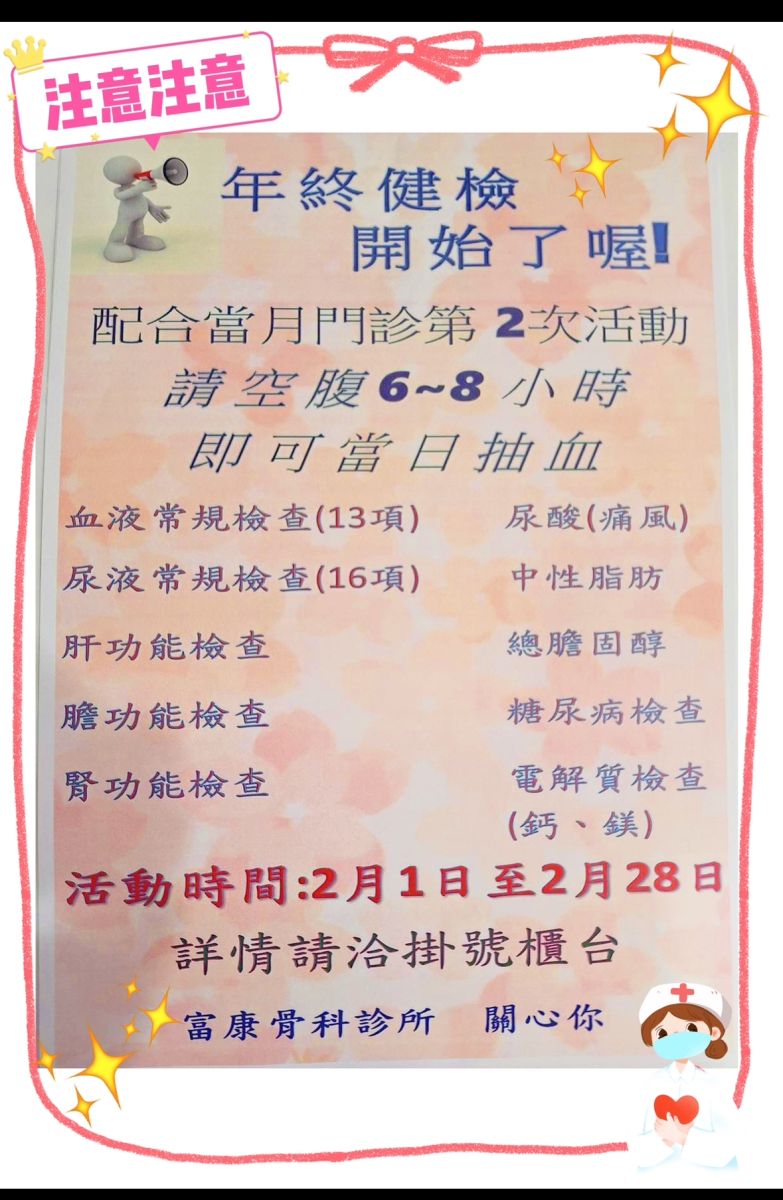 注意注意
年終健檢
開始了喔!
配合當月門診第2次活動
請空腹6~8小時
即可當日抽血
血液常規檢查(13項)
尿酸(痛風)
尿液常規檢查(16項)
中性脂肪
肝功能檢查
總膽固醇
膽功能檢查
糖尿病檢查
腎功能檢查
電解質檢查
(鈣、鎂)
活動時間:2月1日至2月28日
詳情請洽掛號櫃台
富康骨科診所 關心你